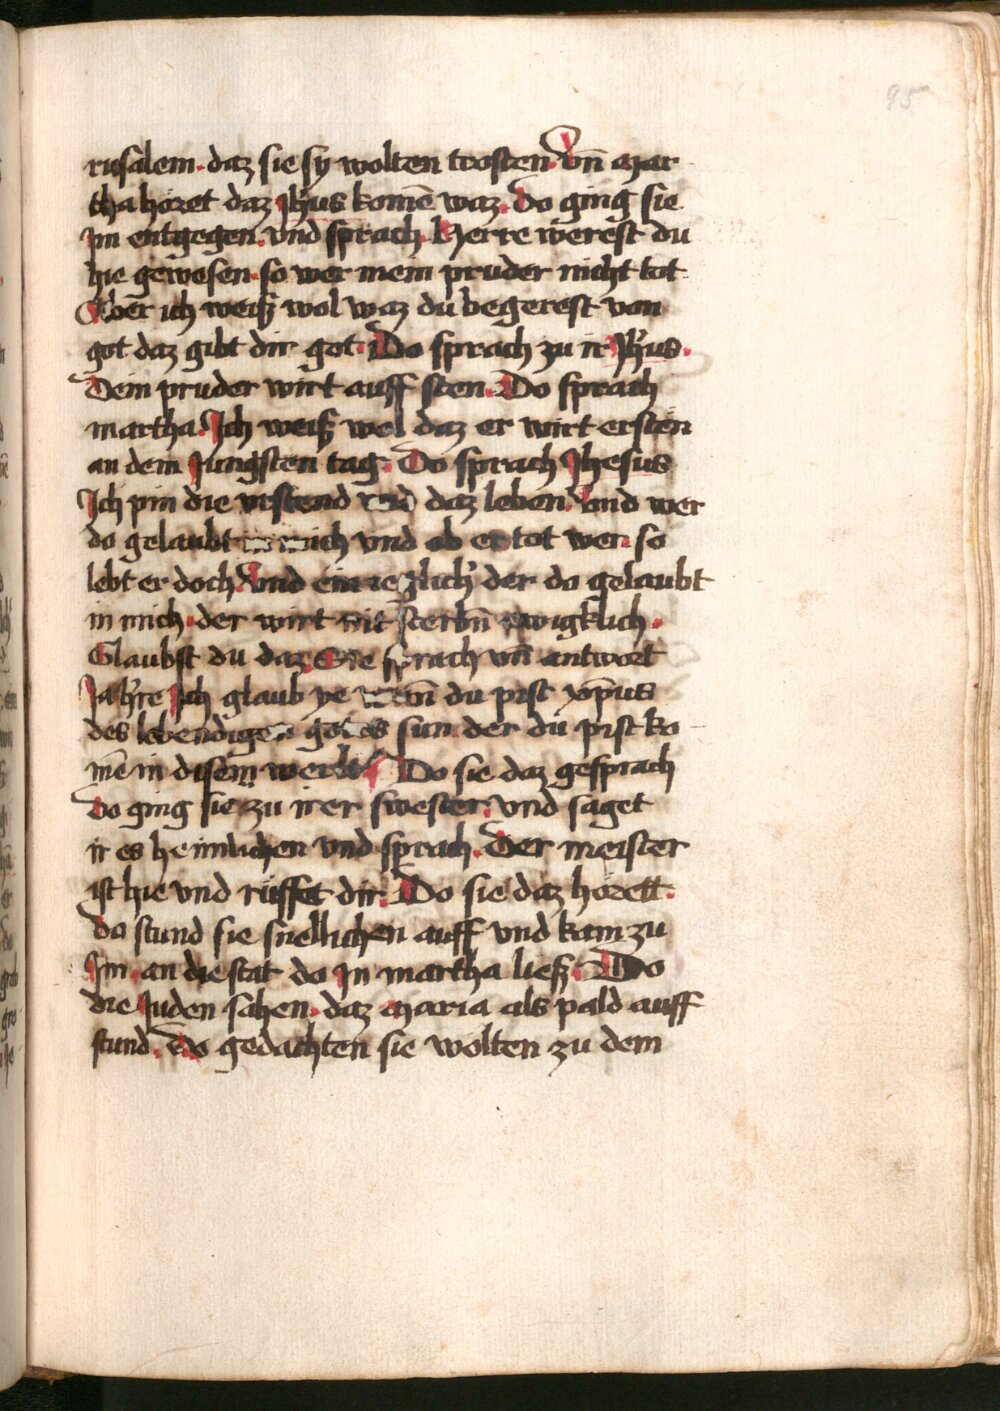 95
rusalem. daz sie sy wolten trosten. Vn̄ mar
tha höret daz Jhūs komē waz. Do ging sie
Im entgegen. vnd sprach. Herre werest du
hie gewesen. so wer mein pruder nicht tot
Aber ich weiß wol waz du begerest von
got daz gibt dir got. Do sprach zu ir Jhūs.
Dein pruder wirt auff sten. Do sprach
martha. Ich weiß wol daz er wirt ersten
an dem Jungsten tag. Do sprach Jhesus
Ich pin die vrstend vnd daz leben. Vnd wer
do gelaubt in mich vnd ob er tot wer. so
lebt er doch. Vnd ein iezlich' der do gelaubt
in mich. der wirt nit sterbn̄ ewigklich.
Glaubst du daz. Sie sprach vn̄ antwort
Ja h're Ich glaub ye du pist xp̄us
des lebendigen gotes sun. der du pist ko
mē in disem werlt Do sie daz gesprach
do ging sie zu irer swester. vnd saget
ir es heimlichen vnd sprach. Der meister
ist hie vnd rüffet dir. Do sie daz hörett.
do stund sie snellichen auff vnd kam zu
Im. an die stat do In martha ließ. Do
die Juden sahen. daz maria als pald auff
stund. do gedachten sie wolten zu dem